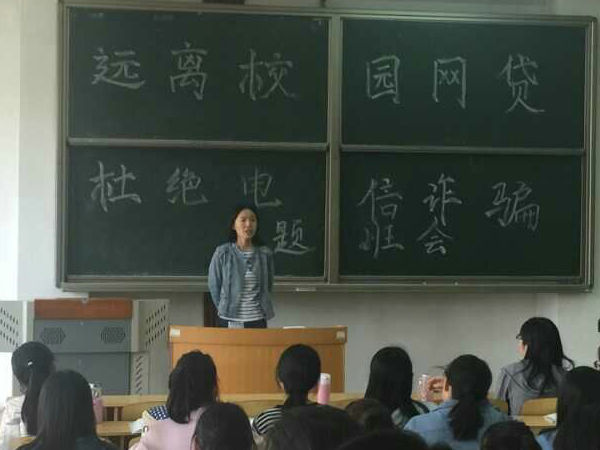 远离校园网贷
杜绝电信诈骗
题班会